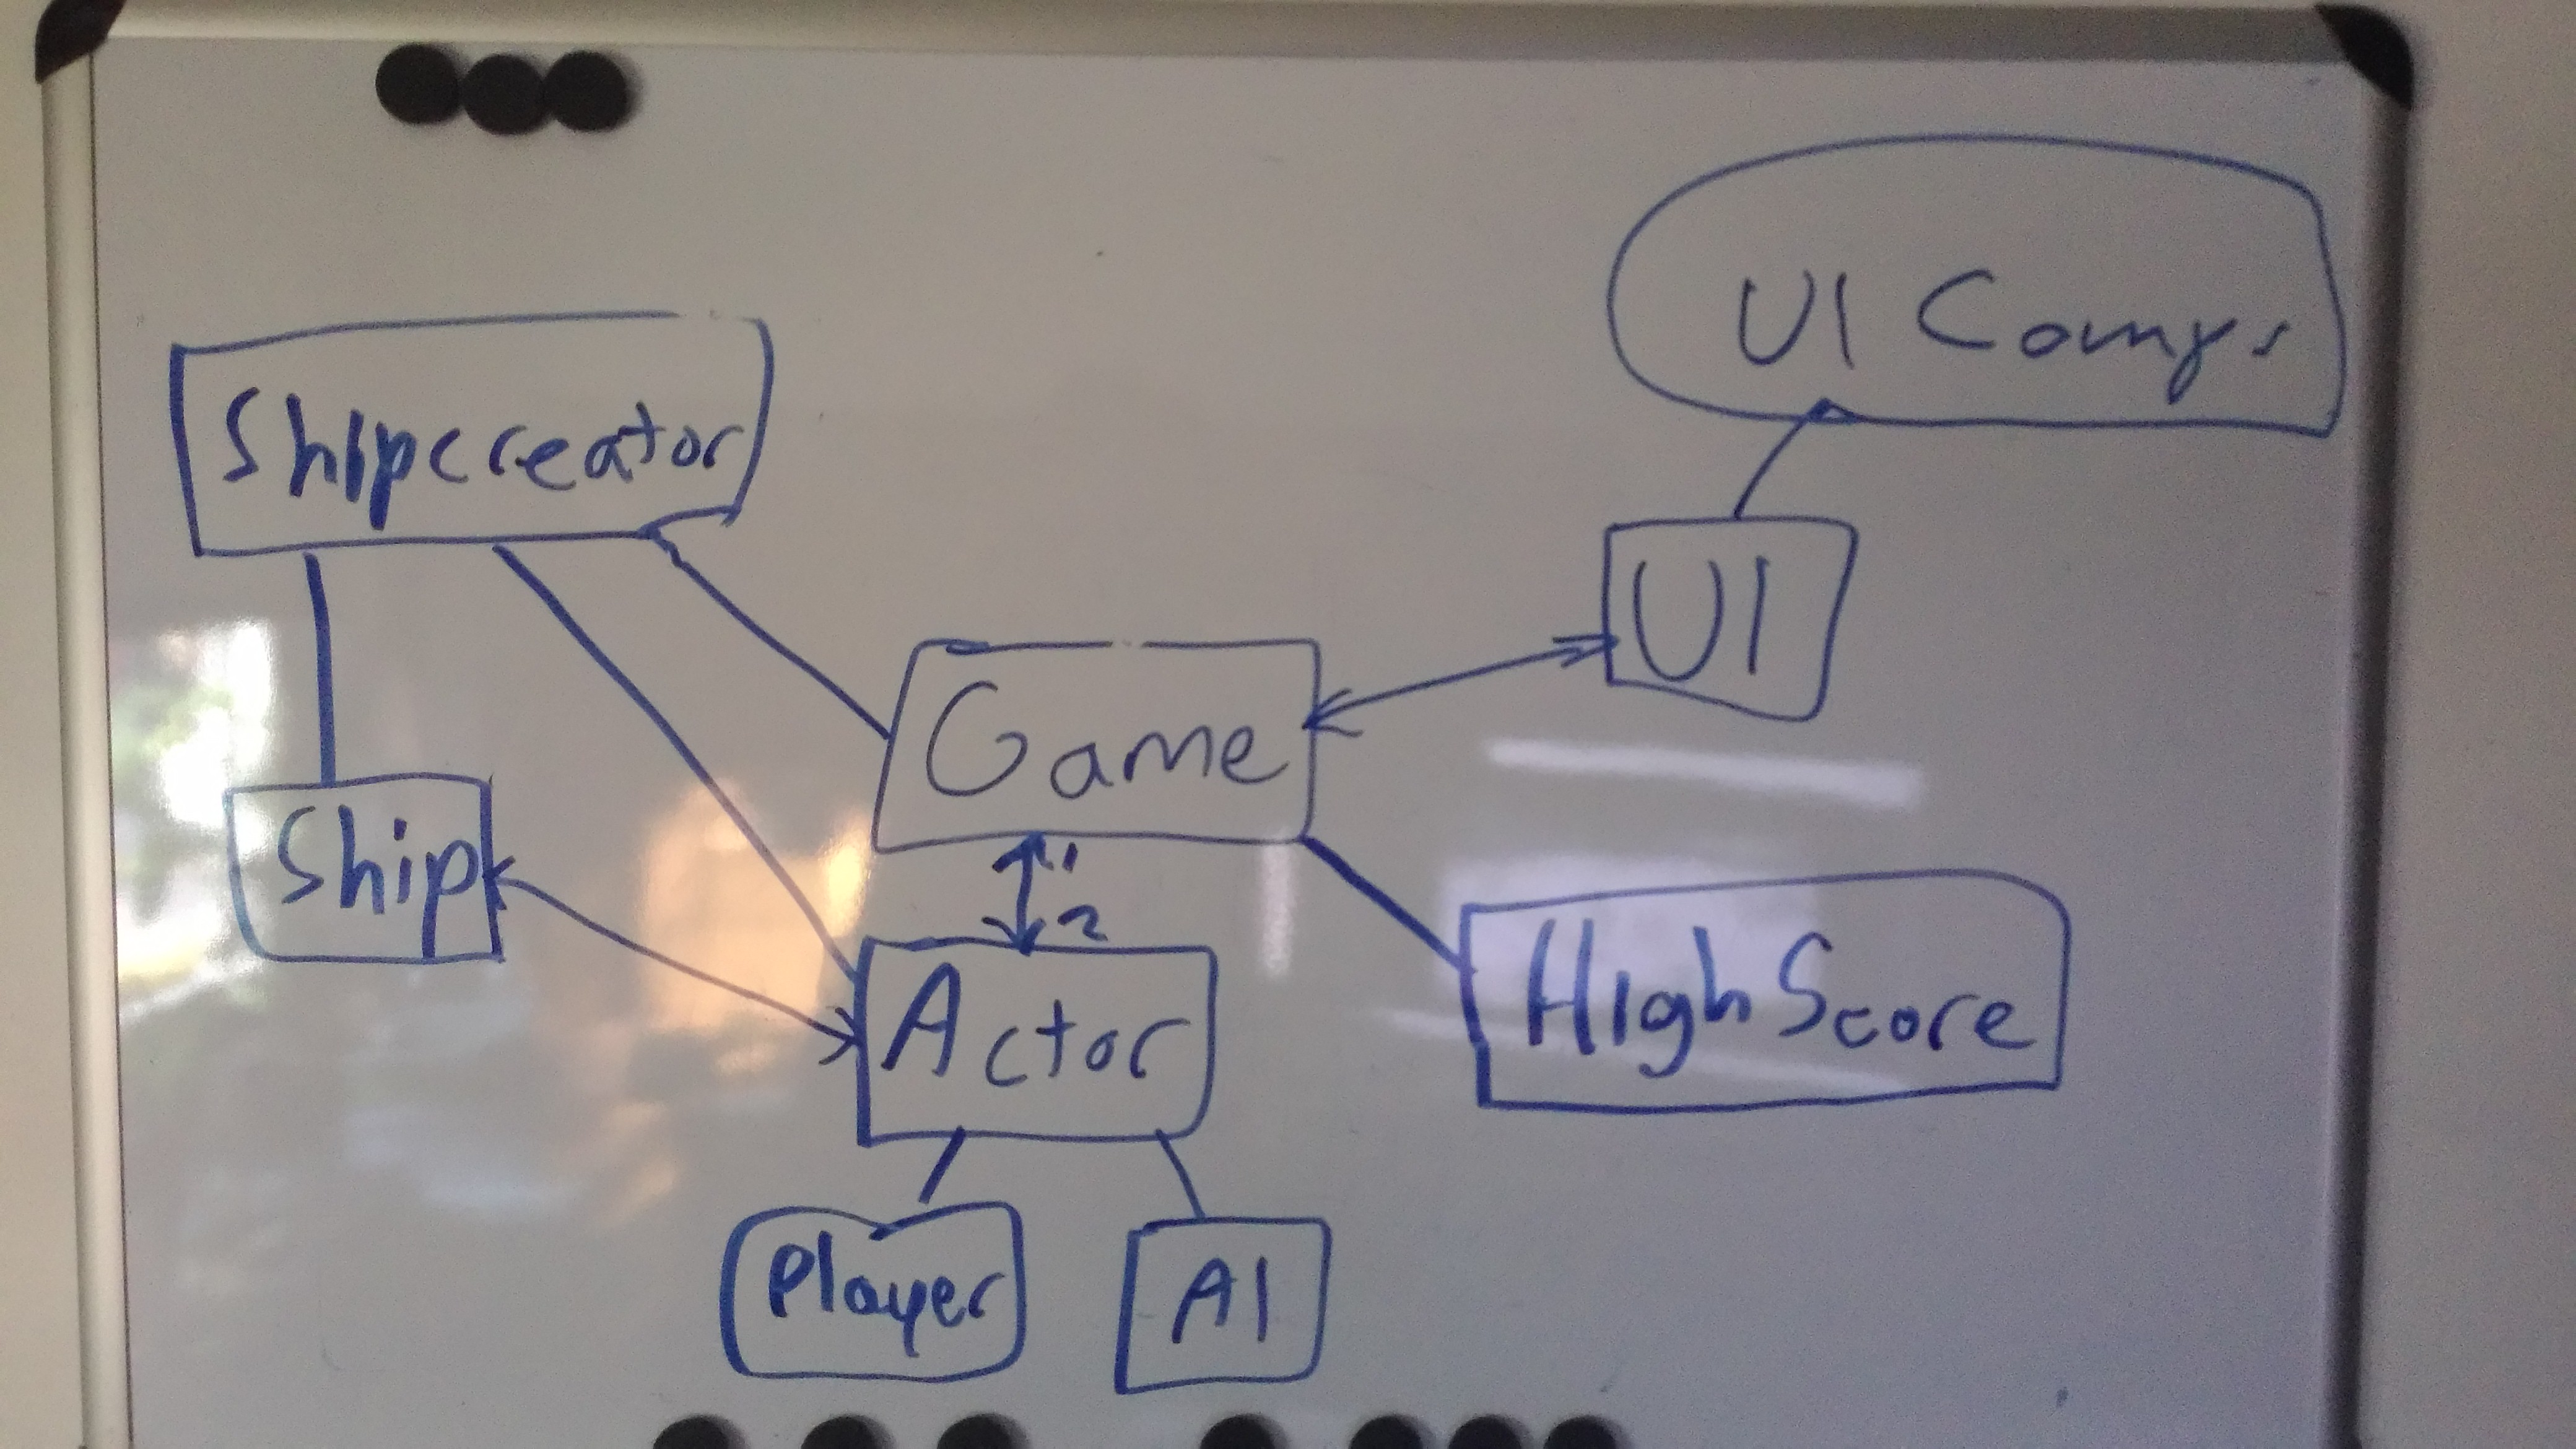 UI Comps
Shipcreator
UI
Game
Ship
1
2
Actor
HighScore
Player
AI